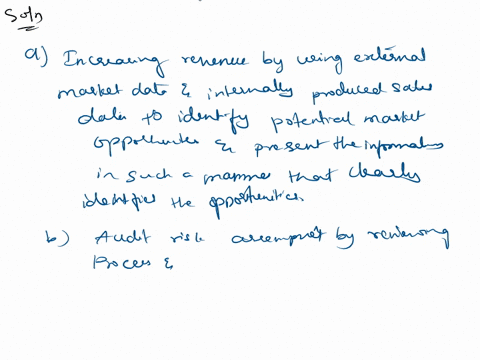 Soln
a) Increasing revenue by using external
market data & internally produced sales
data to identify potential market
opportunities & present the information
in such a manner that clearly
identifies the opportunities.
b) Audit risk assessment by reviewing
Process &